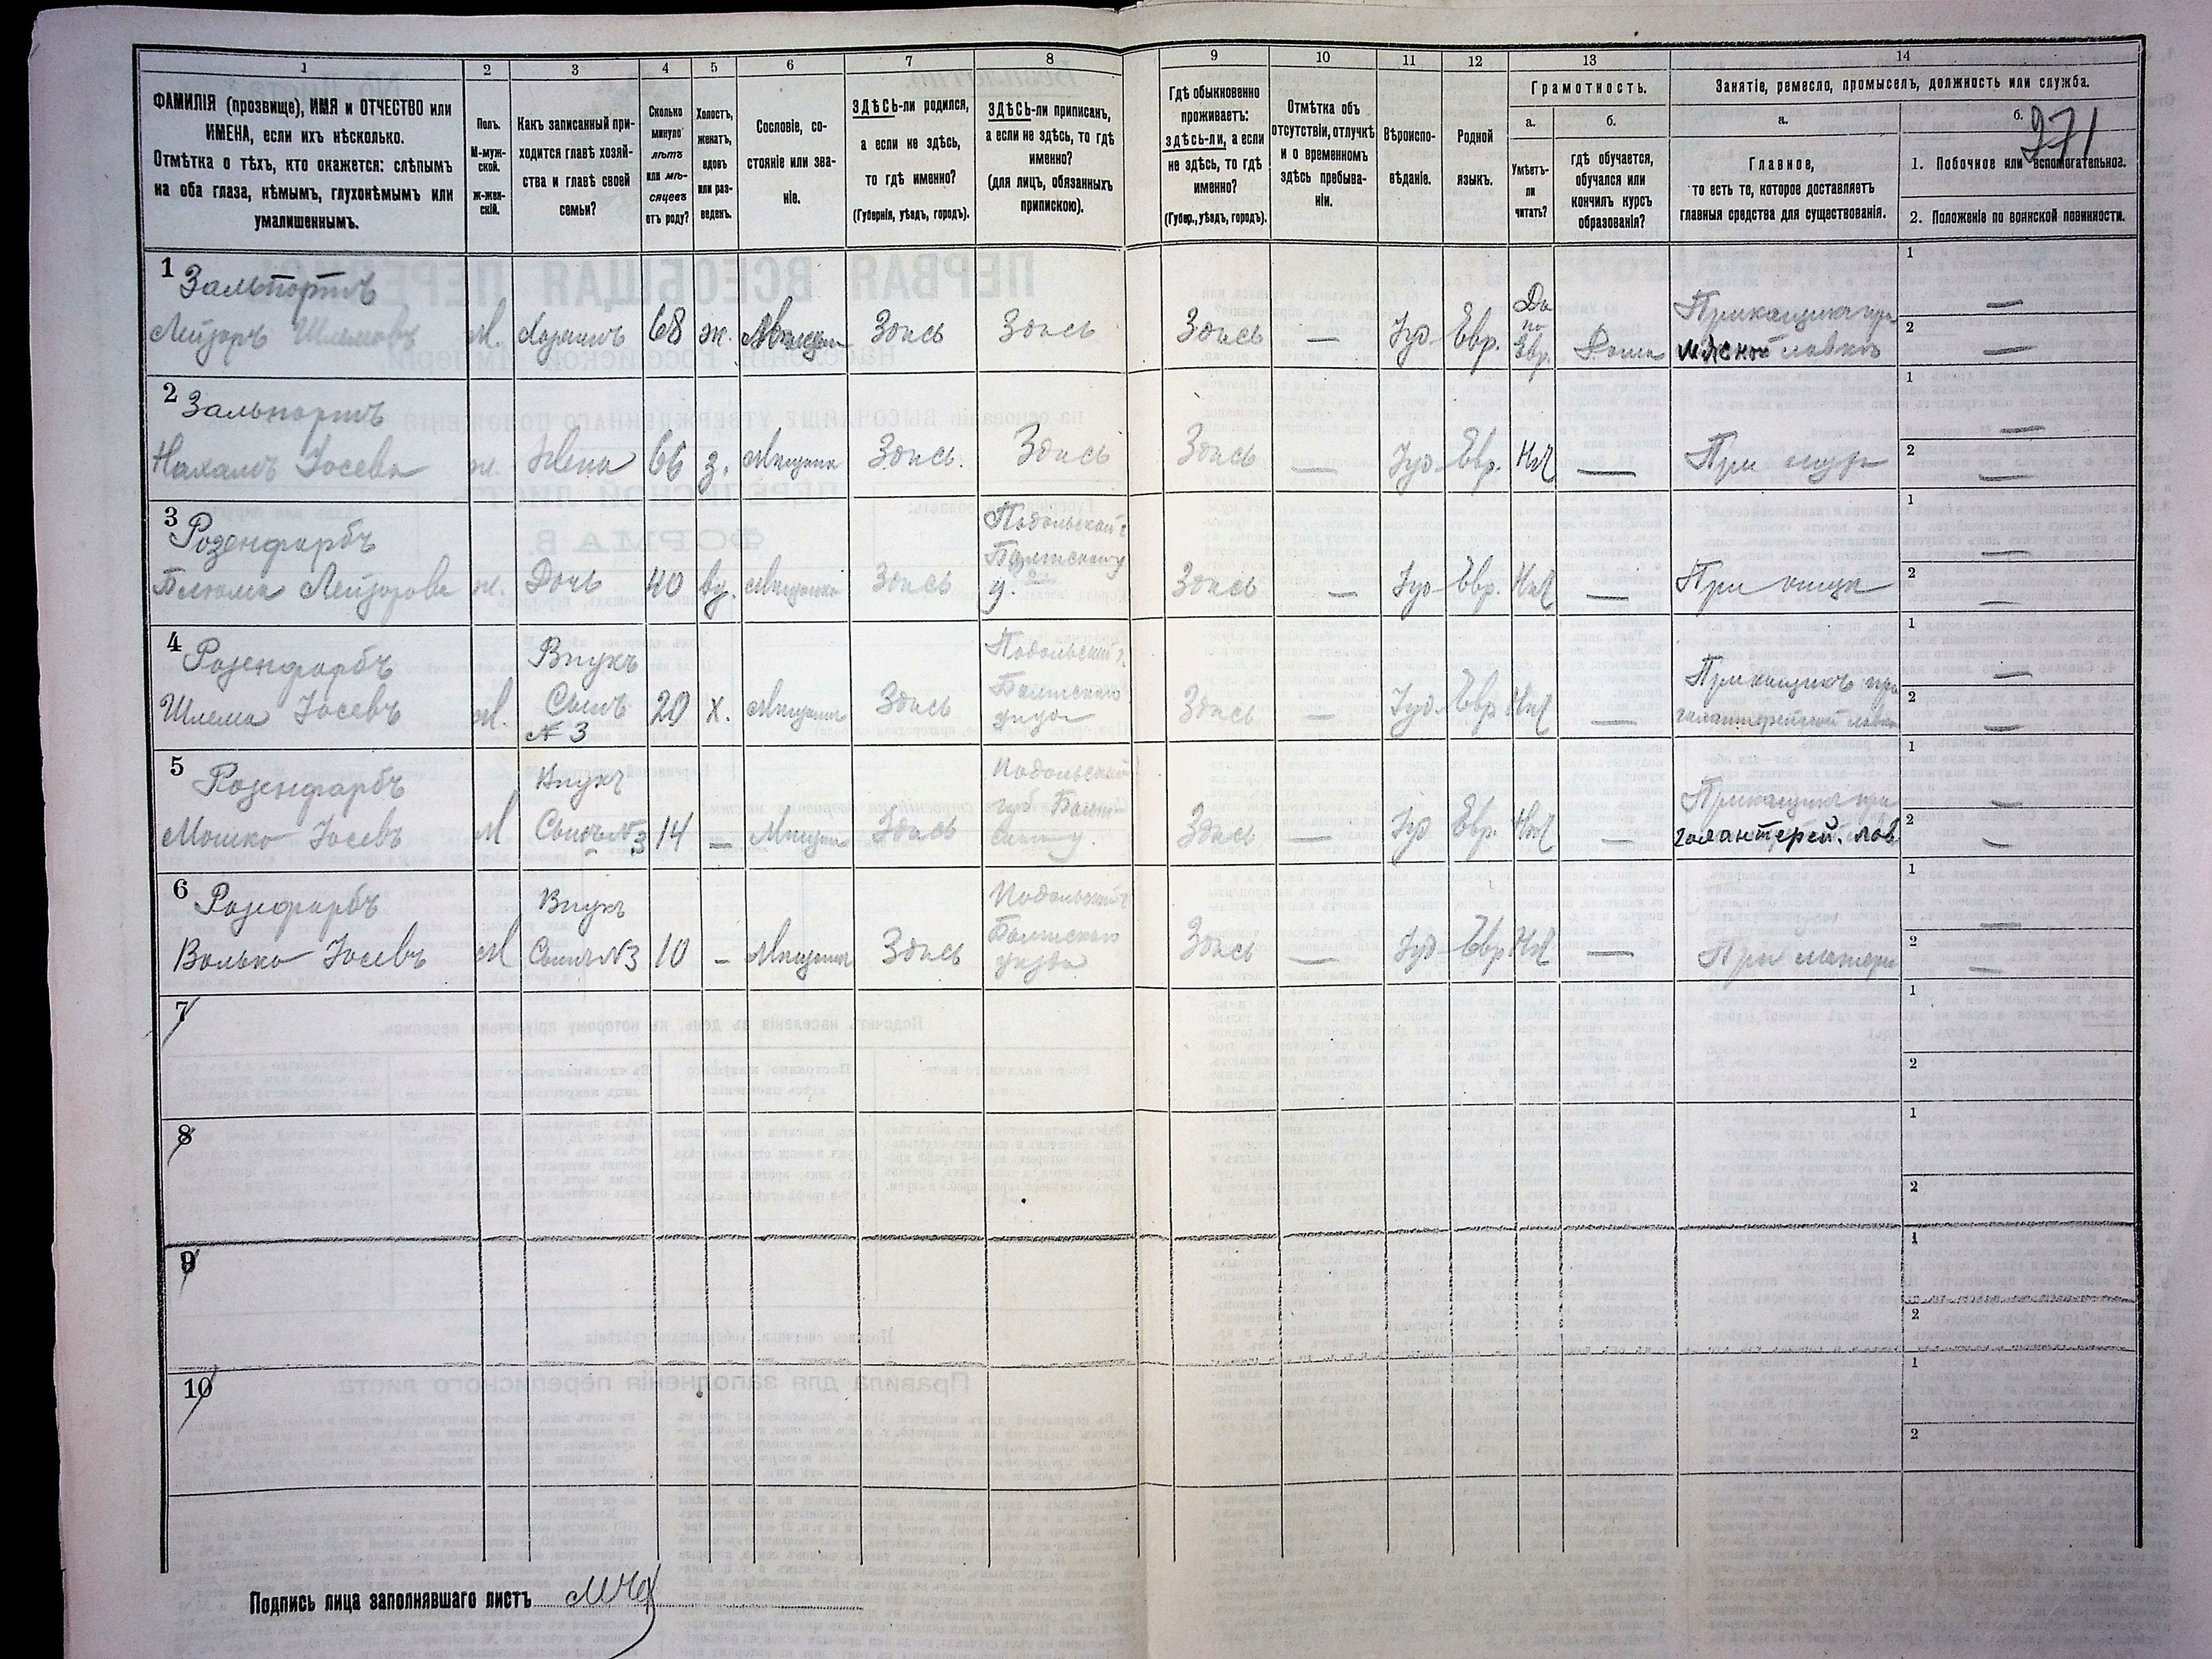 1 2 3 4 5 6 7 8 9 10 11 12 13 14
ФАМИЛІЯ (прозвище), ИМЯ и ОТЧЕСТВО или
ИМЕНА, если ихъ нѣсколько.
Отмѣтка о тѣхъ, кто окажется: слѣпымъ
на оба глаза, нѣмымъ, глухонѣмымъ или
умалишеннымъ.
Полъ.
М-муж-
ской.
Ж-жен-
скій.
Какъ записанный при-
ходится главѣ хозяй-
ства и главѣ своей
семьи?
Сколько
минуло
лѣтъ
или мѣ-
сяцевъ
отъ роду?
Холостъ,
женатъ,
вдовъ
или раз-
веденъ.
Сословіе, со-
стояніе или зва-
ніе.
ЗДѢСЬ-ли родился,
а если не здѣсь,
то гдѣ именно?
(Губернія, уѣздъ, городъ).
ЗДѢСЬ-ли приписанъ,
а если не здѣсь, то гдѣ
именно?
(для лицъ, обязанныхъ
припискою).
Гдѣ обыкновенно
проживаетъ:
здѣсь-ли, а если
не здѣсь, то гдѣ
именно?
(Губер., уѣздъ, городъ).
Отмѣтка объ
отсутствіи, отлучкѣ
и о временномъ
здѣсь пребыва-
ніи.
Вѣроиспо-
вѣданіе.
Родной
языкъ.
Грамотность.
а.
Умѣетъ-
ли
читать?
б.
гдѣ обучается,
обучался или
кончилъ курсъ
образованія?
Занятіе, ремесло, промыселъ, должность или служба.
а.
Главное,
то есть то, которое доставляетъ
главныя средства для существованія.
б.
271
1. Побочное или вспомогательное.
2. Положеніе по воинской повинности.
1 Зальпортъ
Лейзоръ Шлемовъ М. Хозяинъ 68 ж. Мѣщан Здѣсь Здѣсь Здѣсь — Іуд Евр. Да по Евр. Дома Прикащикъ при мясной лавкѣ 1 — 2 —
2 Зальпортъ
Нахамъ Іосева ж. Жена 66 з. Мѣщанка Здѣсь. Здѣсь Здѣсь — Іуд Евр. Нѣт — При мужѣ 1 — 2 —
3 Розенфарбъ
Блюма Лейзорова ж. Дочь 40 вд. Мѣщанка Здѣсь Подольской г. Балтскаго у. Здѣсь — Іуд Евр. Нѣт — При отцѣ 1 — 2 —
4 Розенфарбъ
Шлема Іосевъ М. Внукъ Сынъ № 3 20 х. Мѣщанинъ Здѣсь Подольской г. Балтскаго уѣзда Здѣсь — Іуд Евр Нѣт — Прикащикъ при галантерейной лавкѣ 1 — 2 —
5 Розенфарбъ
Мошко Іосевъ М Внукъ Сынъ №3 14 — Мѣщан Здѣсь Подольской губ. Балт-скаго у. Здѣсь — Іуд Евр. Нѣт — Прикащикъ при галантерей. лав 1 — 2 —
6 Розенфарбъ
Волько Іосевъ М Внукъ Сынъ №3 10 — Мѣщанинъ Здѣсь Подольской г Балтскаго уѣзда Здѣсь — Іуд Евр Нѣт — При матери 1 — 2 —
7 1 2
8 1 2
9 1 2
10 1 2
Подпись лица заполнявшаго листъ